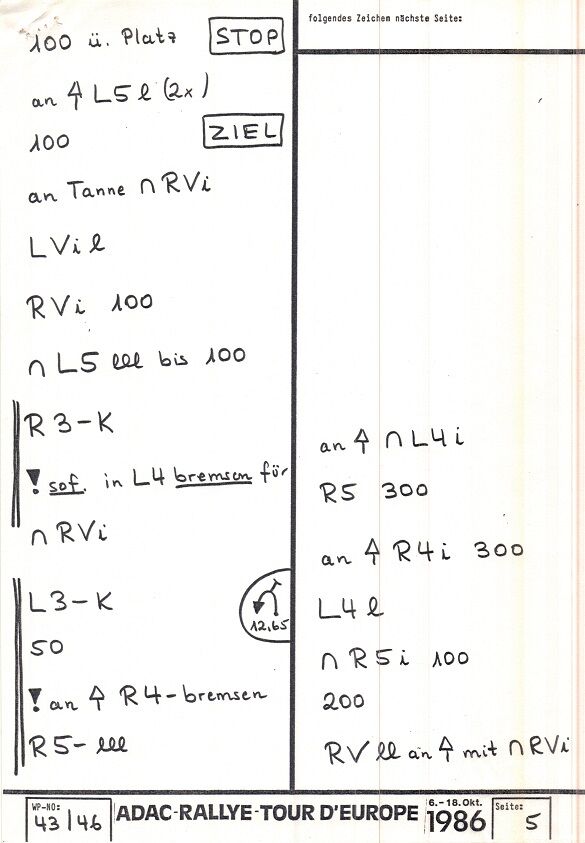 100 ü. Platz STOP
an ↑ L5 l (2x)
100 ZIEL
an Tanne ∩ RVi
LVi l
RVi 100
∩ L5 lll bis 100
R3-K
! sof. in L4 bremsen für
∩ RVi
L3-K
12,65
50
! an ↑ R4-bremsen
R5- lll
folgendes Zeichen nächste Seite:
an ↑ ∩ L4 i
R5 300
an ↑ R4 i 300
L4 l
∩ R5 i 100
200
RV ll an ↑ mit ∩ RVi
WP-NO:
43/46
ADAC-RALLYE-TOUR D'EUROPE
6.-18.Okt.
1986
Seite:
5